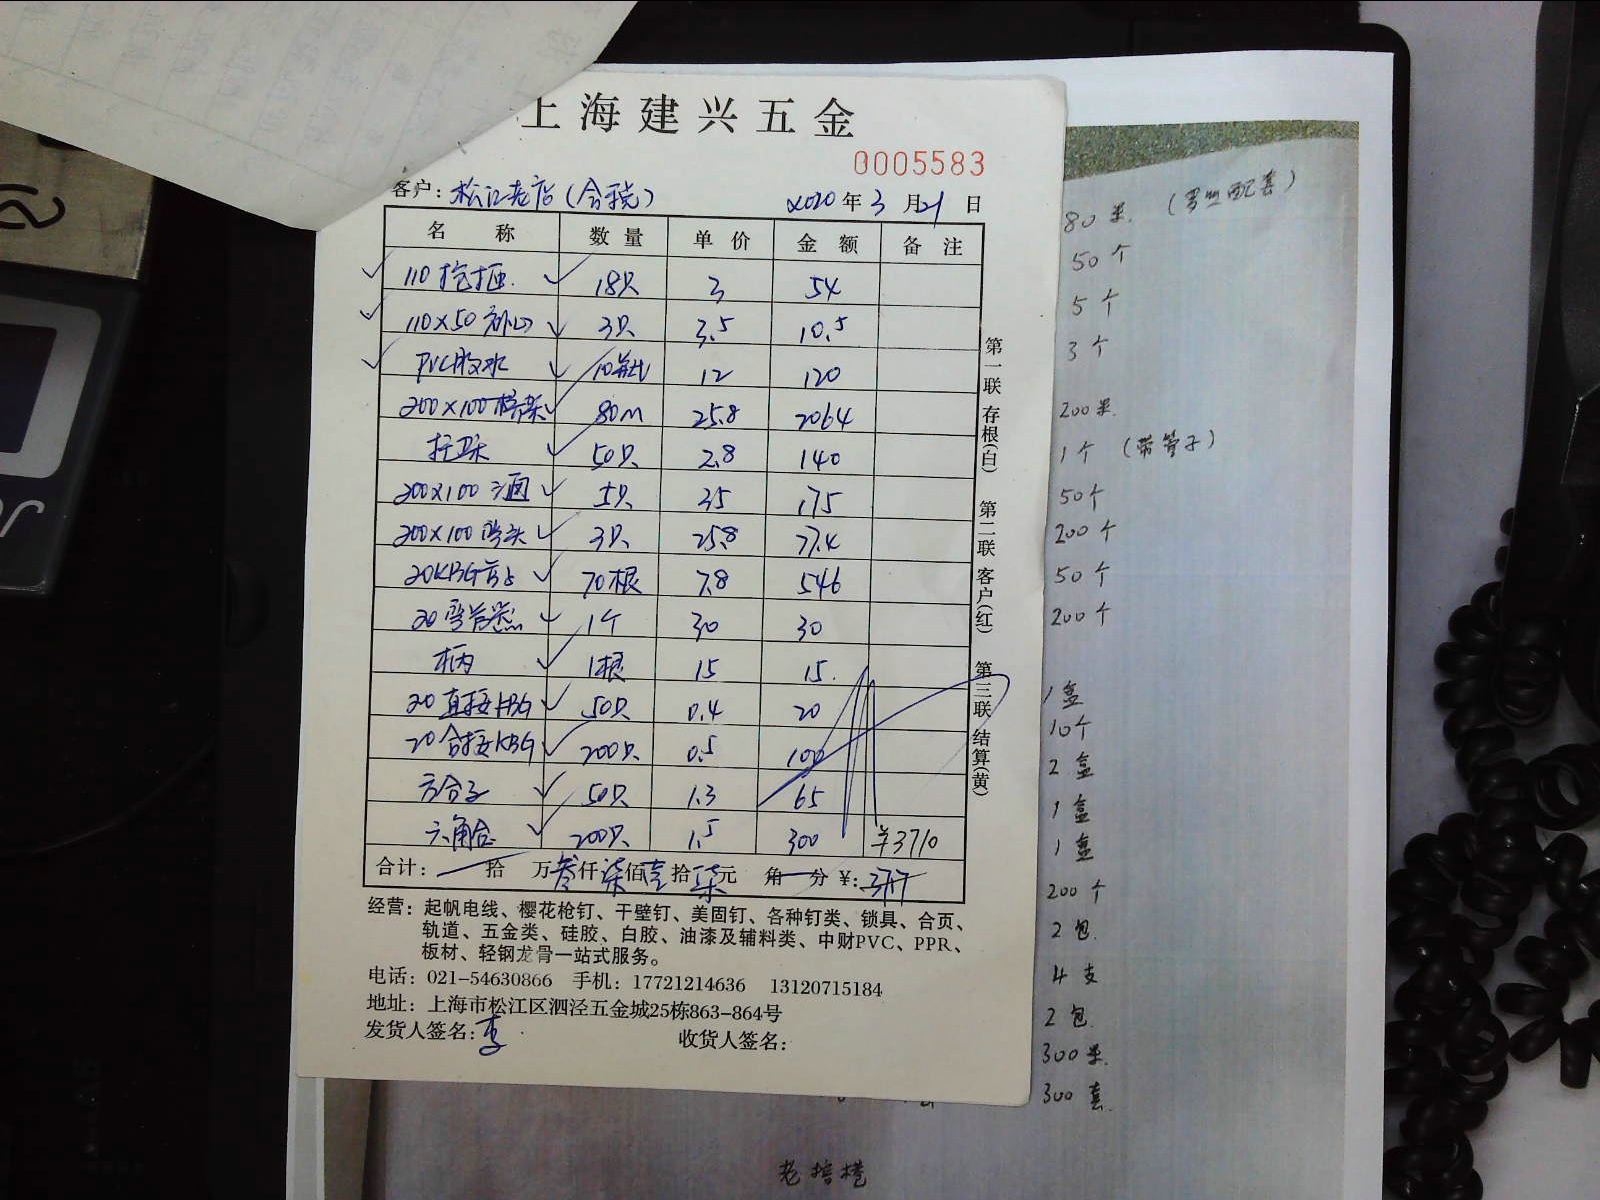 上海建兴五金
0005583
客户：松江老店（含税） 2020年3月21日
名称 数量 单价 金额 备注
110 18只 3 54
110×50补心 3只 3.5 10.5
PVC胶水 10瓶 12 120
200×100桥架 80m 25.8 2064
50只 2.8 140
200×100三通 5只 35 175
200×100弯头 3只 25.8 77.4
20KBG 70根 7.8 546
20弯管器 1个 30 30
柄 1根 15 15.
20直接KBG 50只 0.4 20
20合接KBG 200只 0.5 100
方合子 50只 1.3 65
六角合 200只 1.5 300 ¥3710
合计： 拾 万叁仟柒佰壹拾柒元 角 分 ¥：3717
经营：起帆电线、樱花枪钉、干壁钉、美固钉、各种钉类、锁具、合页、
轨道、五金类、硅胶、白胶、油漆及辅料类、中财PVC、PPR、
板材、轻钢龙骨一站式服务。
电话：021-54630866 手机：17721214636 13120715184
地址：上海市松江区泗泾五金城25栋863-864号
发货人签名：李 收货人签名：
第一联 存根(白) 第二联 客户(红) 第三联 结算(黄)
80米.
50个
5个
3个
200米.
1个（带管子）
50个
200个
50个
200个
1盒
10个
2盒
1盒
1盒
200个
2包.
4支
2包.
300米.
300套.